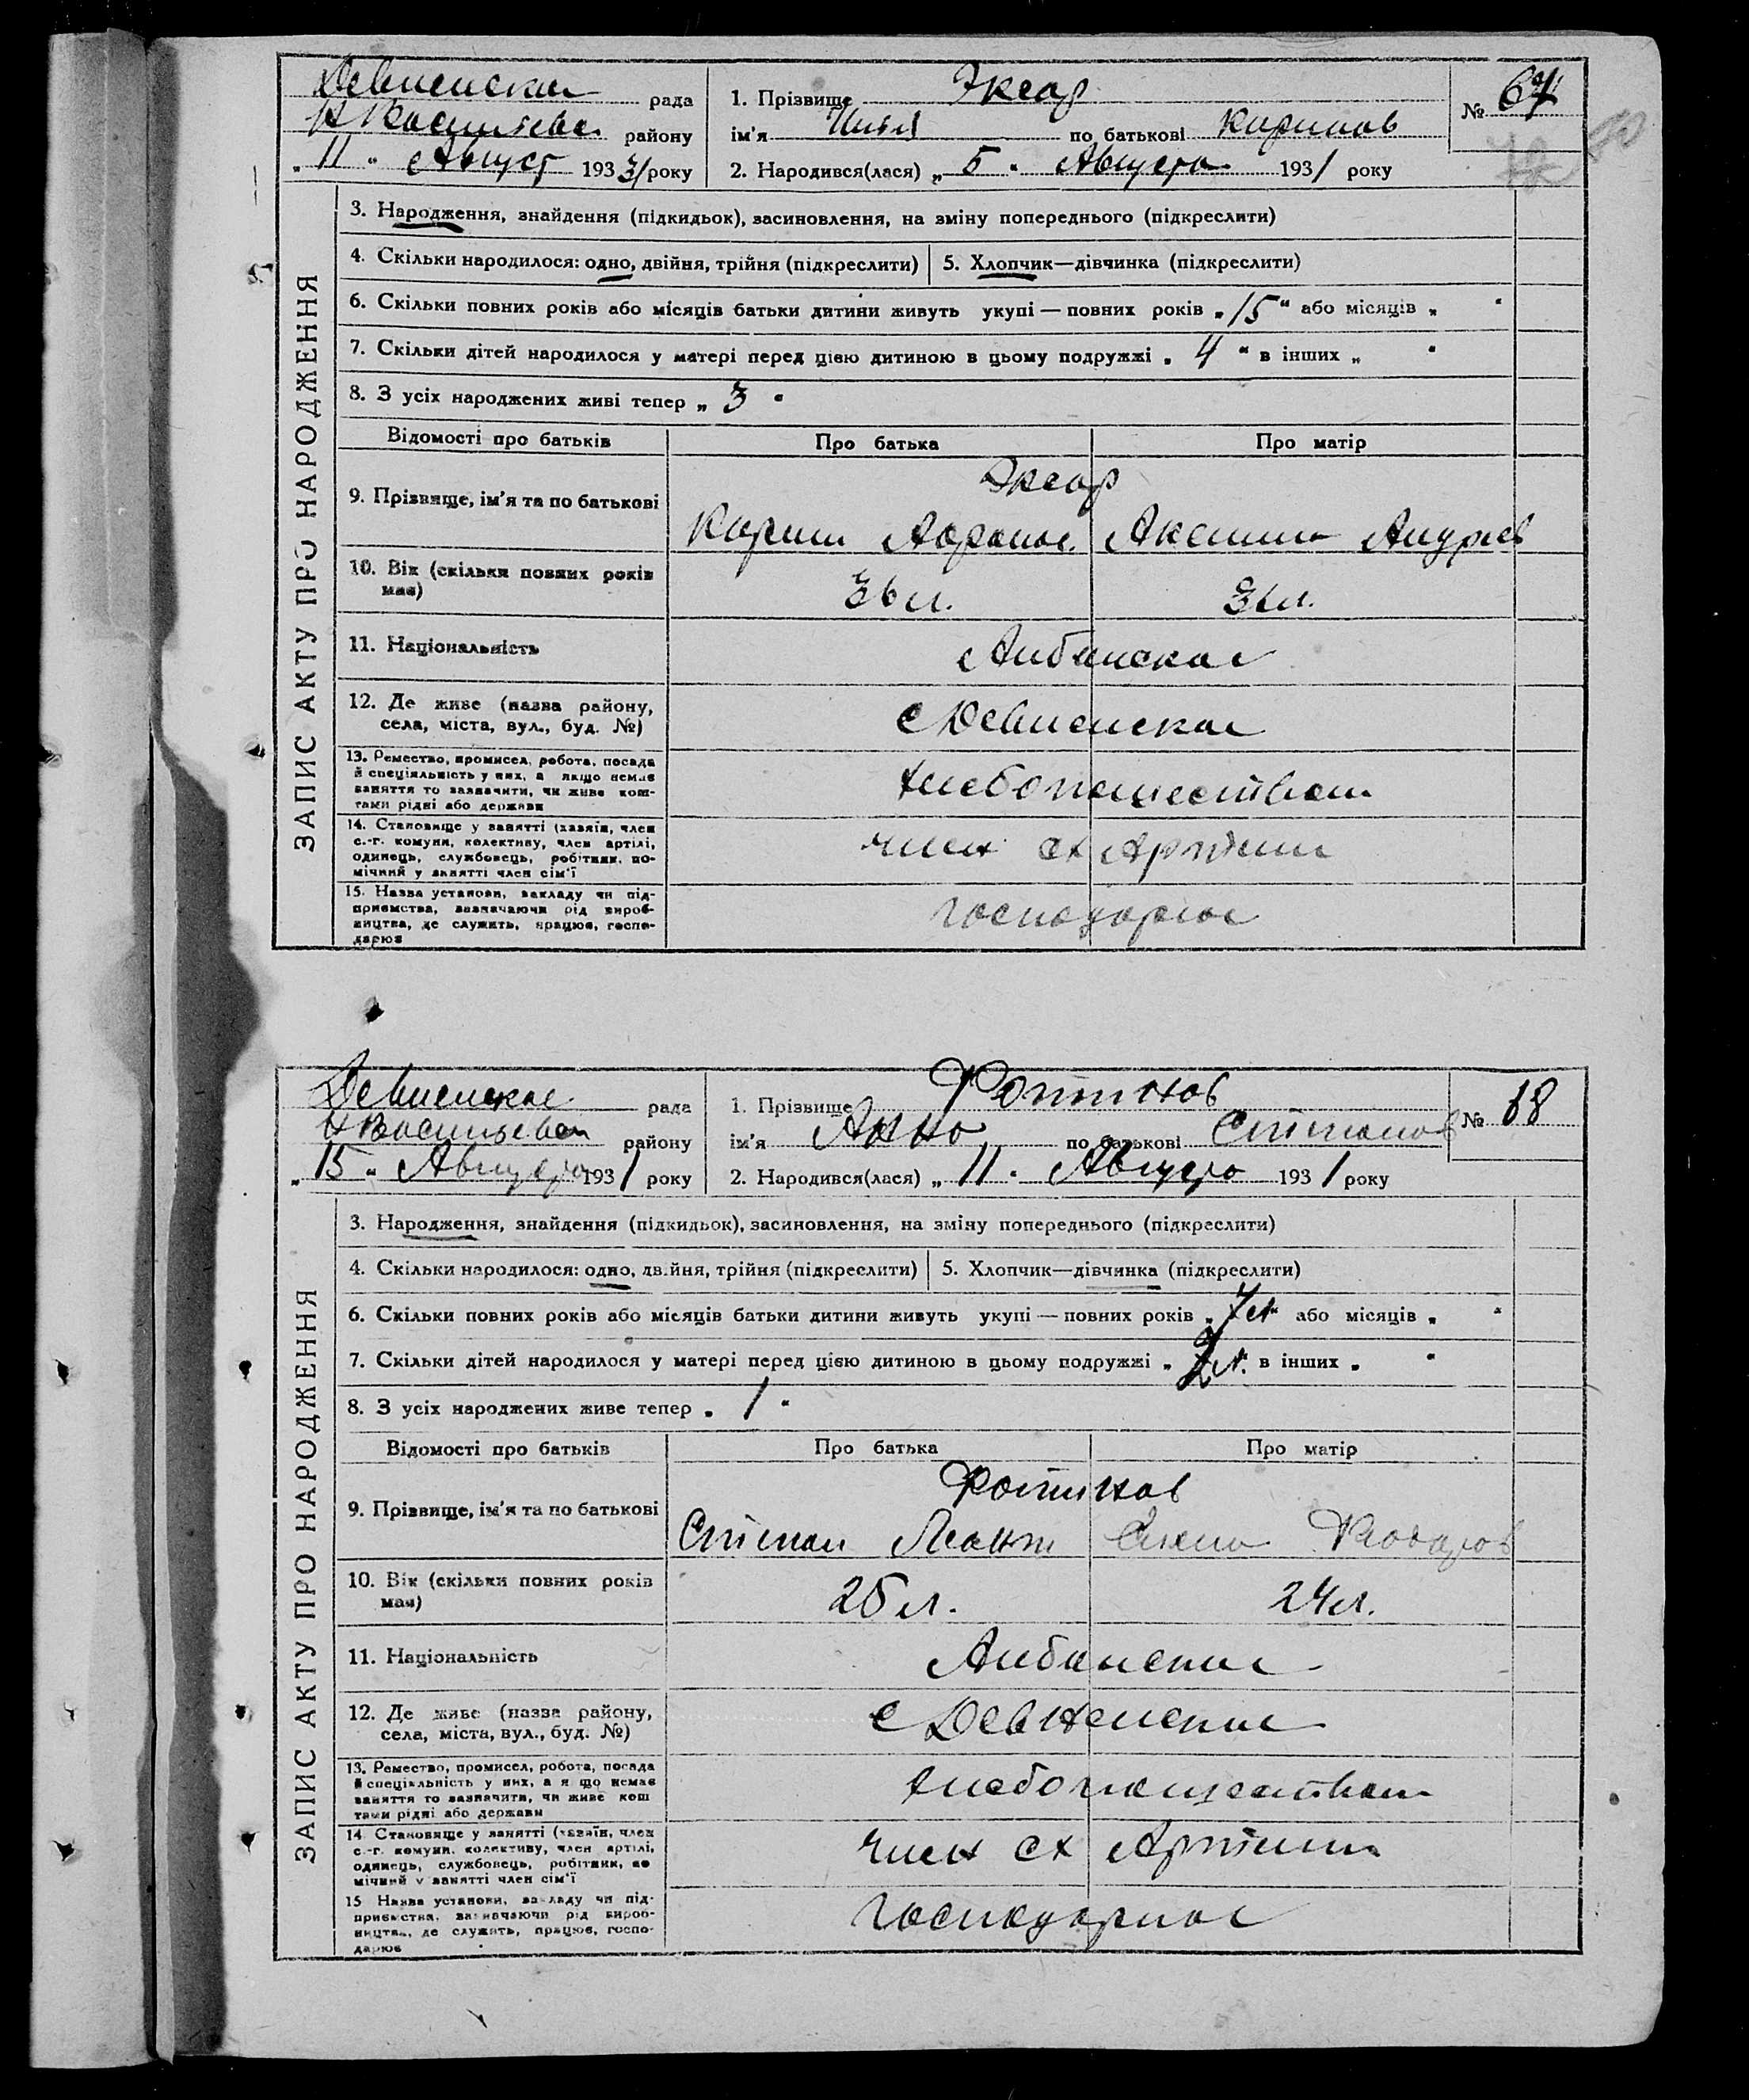 Девненская рада
Н Васильевск району
„ 11 “ Август 1931 року
1. Прізвище Эксар
ім'я Илья по батькові Кирилов
2. Народився(лася) „ 5 “ Августа 1931 року
№ 67
ЗАПИС АКТУ ПРО НАРОДЖЕННЯ
3. Народження, знайдення (підкидьок), засиновлення, на зміну попереднього (підкреслити)
4. Скільки народилося: одно, двійня, трійня (підкреслити) 5. Хлопчик—дівчинка (підкреслити)
6. Скільки повних років або місяців батьки дитини живуть укупі — повних років „ 15 “ або місяців „ “
7. Скільки дітей народилося у матері перед цією дитиною в цьому подружжі „ 4 “ в інших „ “
8. З усіх народжених живі тепер „ 3 “
Відомості про батьків Про батька Про матір
9. Прізвище, ім'я та по батькові
Эксар
Кирил Аксинья Андреев
10. Вік (скільки повних років
має)
36 л. 36 л.
11. Національність
Албанское
12. Де живе (назва району,
села, міста, вул., буд. №)
с Девненское
13. Ремество, промисел, робота, посада
й спеціяльність у них, а якщо немає
заняття то зазначити, чи живе кош-
тами рідні або держави
хлебопашеством
14. Становище у занятті (хазяїн, член
с.-г. комуни, колективу, член артілі,
одинець, службовець, робітник, по-
мічний у занятті член сім'ї
член сх Артели
15. Назва установи, закладу чи під-
приємства, зазначаючи рід вироб-
ництва, де служить, працює, госпо-
дарює
господарное
Девненское рада
Н Васильевск району
„ 15 “ Августа 1931 року
1. Прізвище Фотинов
ім'я Анна по батькові Степанов
2. Народився(лася) „ 11 “ Августа 1931 року
№ 68
ЗАПИС АКТУ ПРО НАРОДЖЕННЯ
3. Народження, знайдення (підкидьок), засиновлення, на зміну попереднього (підкреслити)
4. Скільки народилося: одно, двійня, трійня (підкреслити) 5. Хлопчик—дівчинка (підкреслити)
6. Скільки повних років або місяців батьки дитини живуть укупі — повних років „ 7 л “ або місяців „ “
7. Скільки дітей народилося у матері перед цією дитиною в цьому подружжі „ 2 “ в інших „ “
8. З усіх народжених живе тепер „ 1 “
Відомості про батьків Про батька Про матір
9. Прізвище, ім'я та по батькові
Фотинов
Степан Леонт Елена Феодоров
10. Вік (скільки повних років
має)
25 л. 24 л.
11. Національність
Албанское
12. Де живе (назва району,
села, міста, вул., буд. №)
с Девненское
13. Ремество, промисел, робота, посада
й спеціяльність у них, а якщо немає
заняття то зазначити, чи живе кош
тами рідні або держави
хлебопашеством
14. Становище у занятті (хазяїн, член
с.-г. комуни, колективу, член артілі,
одинець, службовець, робітник, по
мічний у занятті член сім'ї
член сх Артели
15 Назва установи, закладу чи під-
приємства, зазначаючи рід вироб-
ництва, де служить, працює, госпо-
дарює
господарное